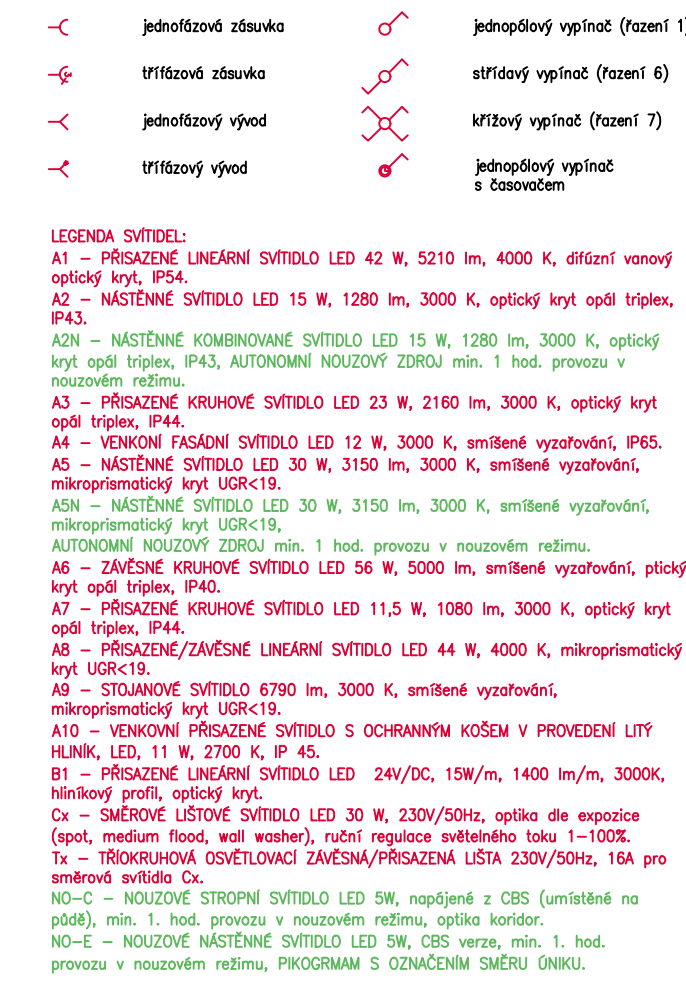 jednofázová zásuvka
jednopólový vypínač (řazení 1)
třífázová zásuvka
střídavý vypínač (řazení 6)
jednofázový vývod
křížový vypínač (řazení 7)
třífázový vývod
jednopólový vypínač
s časovačem
LEGENDA SVÍTIDEL:
A1 – PŘISAZENÉ LINEÁRNÍ SVÍTIDLO LED 42 W, 5210 lm, 4000 K, difúzní vanový
optický kryt, IP54.
A2 – NÁSTĚNNÉ SVÍTIDLO LED 15 W, 1280 lm, 3000 K, optický kryt opál triplex,
IP43.
A2N – NÁSTĚNNÉ KOMBINOVANÉ SVÍTIDLO LED 15 W, 1280 lm, 3000 K, optický
kryt opál triplex, IP43, AUTONOMNÍ NOUZOVÝ ZDROJ min. 1 hod. provozu v
nouzovém režimu.
A3 – PŘISAZENÉ KRUHOVÉ SVÍTIDLO LED 23 W, 2160 lm, 3000 K, optický kryt
opál triplex, IP44.
A4 – VENKONÍ FASÁDNÍ SVÍTIDLO LED 12 W, 3000 K, smíšené vyzařování, IP65.
A5 – NÁSTĚNNÉ SVÍTIDLO LED 30 W, 3150 lm, 3000 K, smíšené vyzařování,
mikroprismatický kryt UGR<19.
A5N – NÁSTĚNNÉ SVÍTIDLO LED 30 W, 3150 lm, 3000 K, smíšené vyzařování,
mikroprismatický kryt UGR<19,
AUTONOMNÍ NOUZOVÝ ZDROJ min. 1 hod. provozu v nouzovém režimu.
A6 – ZÁVĚSNÉ KRUHOVÉ SVÍTIDLO LED 56 W, 5000 lm, smíšené vyzařování, ptický
kryt opál triplex, IP40.
A7 – PŘISAZENÉ KRUHOVÉ SVÍTIDLO LED 11,5 W, 1080 lm, 3000 K, optický kryt
opál triplex, IP44.
A8 – PŘISAZENÉ/ZÁVĚSNÉ LINEÁRNÍ SVÍTIDLO LED 44 W, 4000 K, mikroprismatický
kryt UGR<19.
A9 – STOJANOVÉ SVÍTIDLO 6790 lm, 3000 K, smíšené vyzařování,
mikroprismatický kryt UGR<19.
A10 – VENKOVNÍ PŘISAZENÉ SVÍTIDLO S OCHRANNÝM KOŠEM V PROVEDENÍ LITÝ
HLINÍK, LED, 11 W, 2700 K, IP 45.
B1 – PŘISAZENÉ LINEÁRNÍ SVÍTIDLO LED 24V/DC, 15W/m, 1400 lm/m, 3000K,
hliníkový profil, optický kryt.
Cx – SMĚROVÉ LIŠTOVÉ SVÍTIDLO LED 30 W, 230V/50Hz, optika dle expozice
(spot, medium flood, wall washer), ruční regulace světelného toku 1–100%.
Tx – TŘÍOKRUHOVÁ OSVĚTLOVACÍ ZÁVĚSNÁ/PŘISAZENÁ LIŠTA 230V/50Hz, 16A pro
směrová svítidla Cx.
NO–C – NOUZOVÉ STROPNÍ SVÍTIDLO LED 5W, napájené z CBS (umístěné na
půdě), min. 1. hod. provozu v nouzovém režimu, optika koridor.
NO–E – NOUZOVÉ NÁSTĚNNÉ SVÍTIDLO LED 5W, CBS verze, min. 1. hod.
provozu v nouzovém režimu, PIKOGRMAM S OZNAČENÍM SMĚRU ÚNIKU.